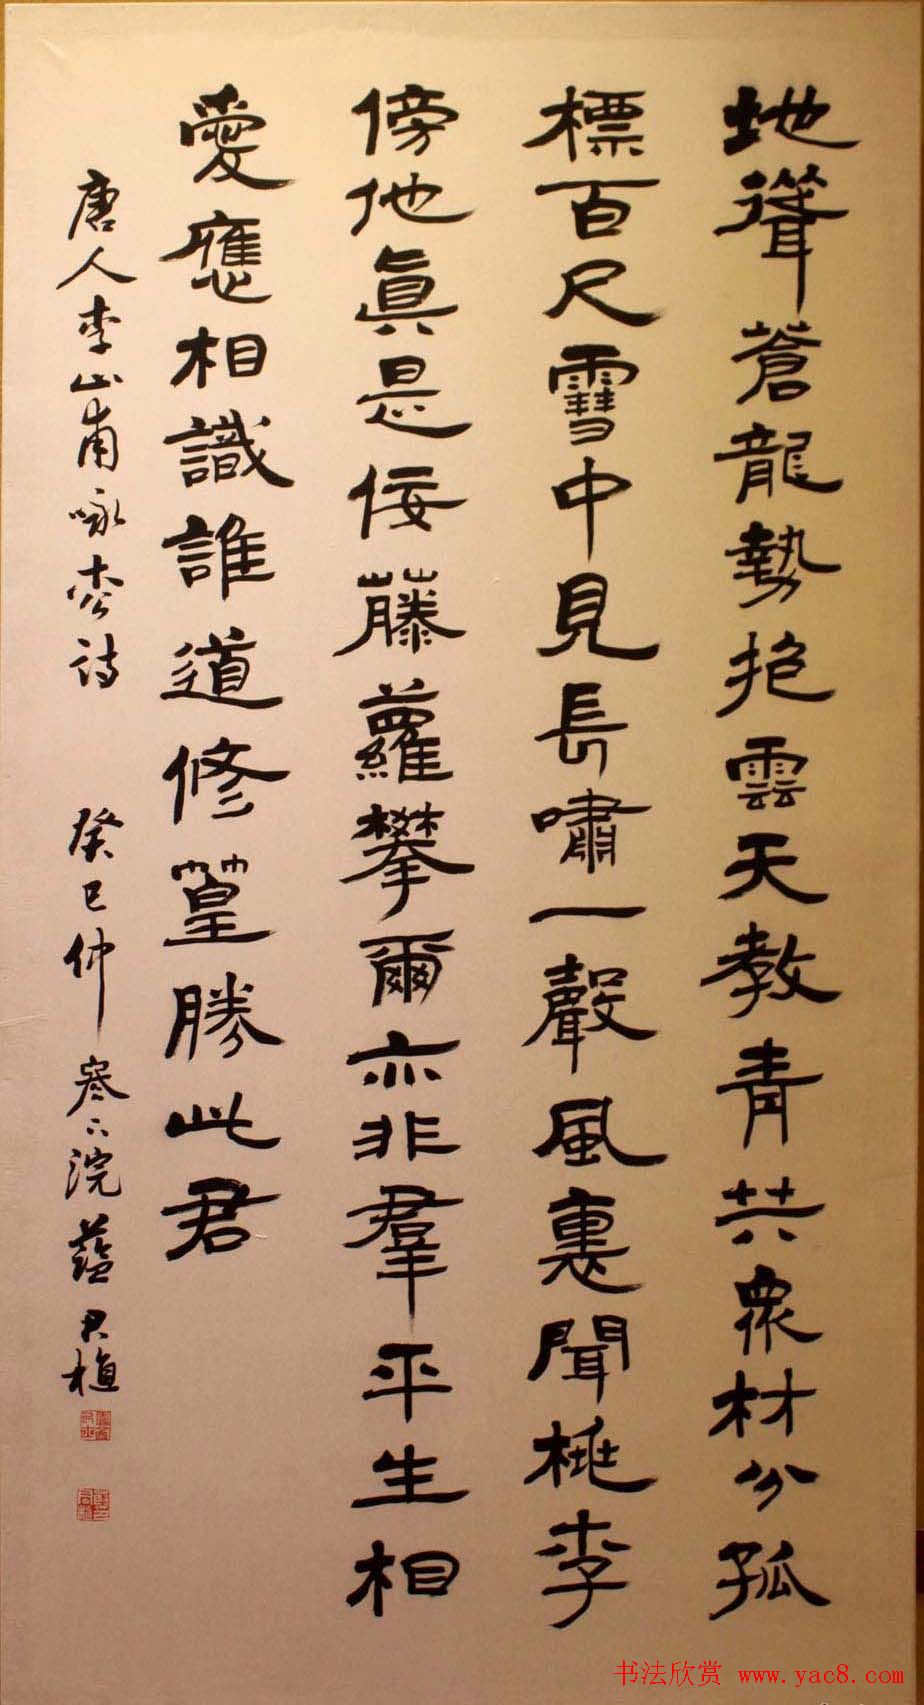 地聳蒼龍勢抱雲天教青共衆材分孤
標百尺雪中見長嘯一聲風裏聞桃李
傍他眞是佞藤蘿攀爾亦非羣平生相
愛應相識誰道修篁勝此君
唐人李山甫咏枩诗 癸巳仲寒下浣
书法欣赏 www.yac8.com